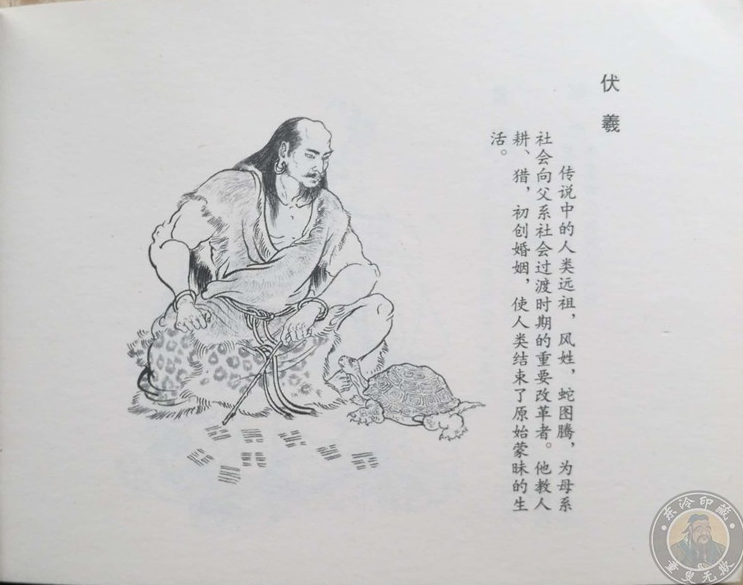 伏羲
传说中的人类远祖，风姓，蛇图腾，为母系
社会向父系社会过渡时期的重要改革者。他教人
耕、猎，初创婚姻，使人类结束了原始蒙昧的生
活。
东泠印藏
童叟无欺